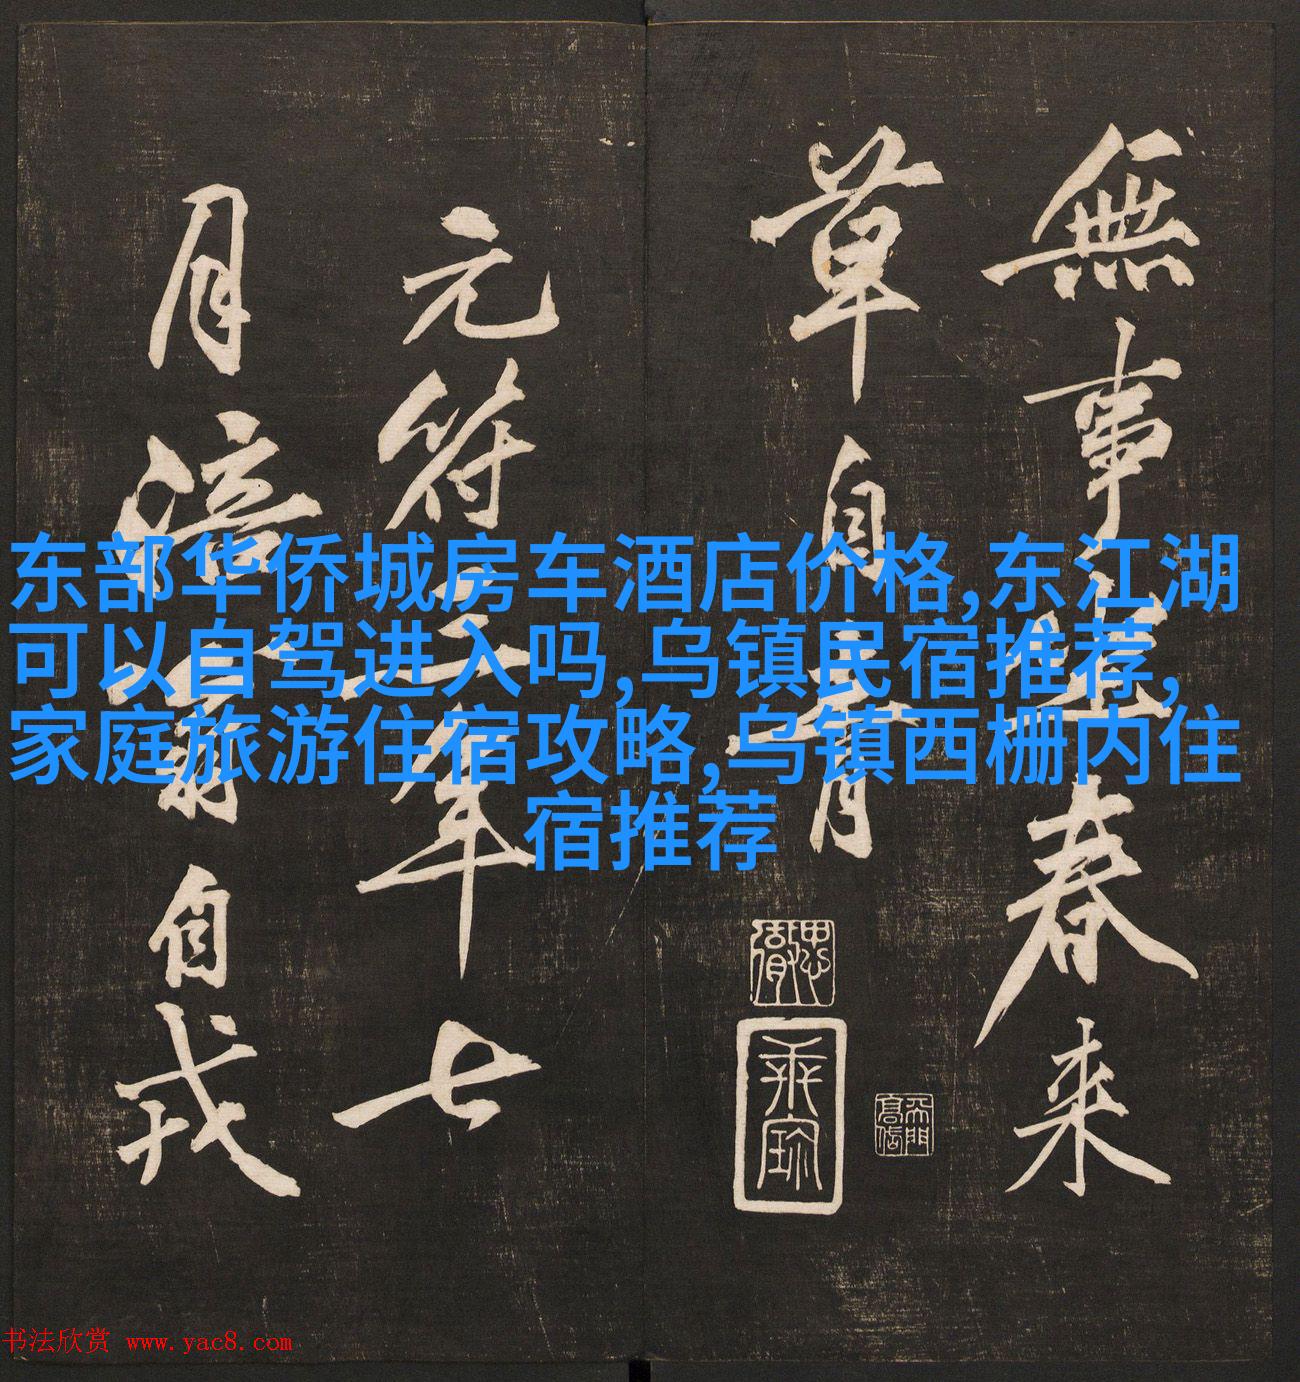 無事坐春来
草自青
元符三年七
月涪翁自戎
东部华侨城房车酒店价格,东江湖
可以自驾进入吗,乌镇民宿推荐,
家庭旅游住宿攻略,乌镇西栅内住
宿推荐
书法欣赏 www.yac8.com